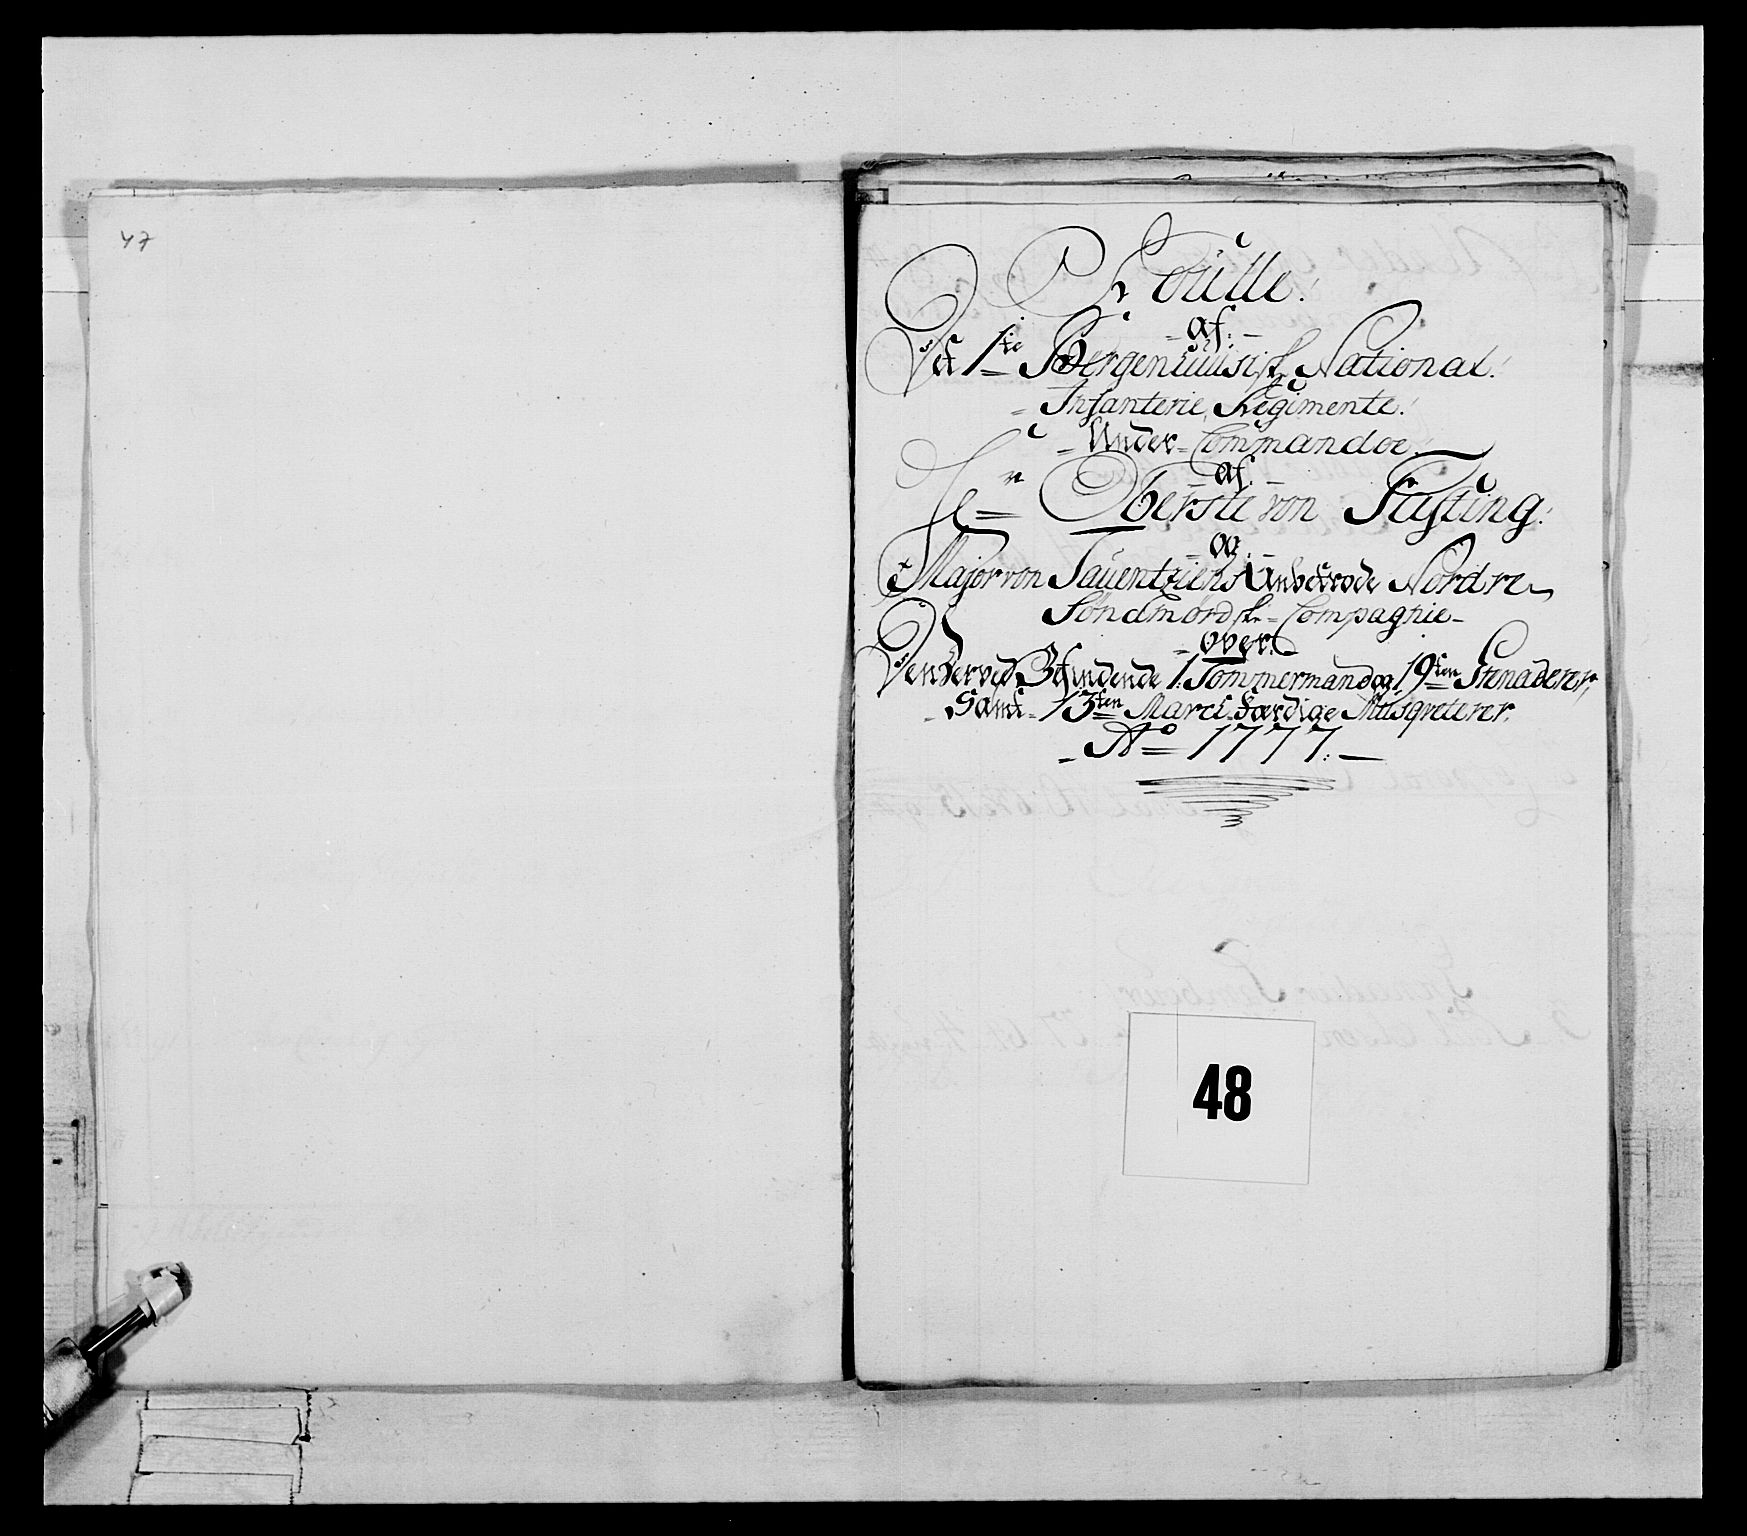 47
Roulle!
- af: -
Det 1te Bergenhuusiske National!
- Infanterie Regimente!
- Under Commandoe.
- af. -
Hr Oberste von Fasting!
- og. -
Major von Tauentziens Anbetrode Nordre
Söndmördske Compagnie -
- over.
Den Derved Befindende 1. Tommermand og 19ten Grenaderer,
- Samt 13ten March færdige Musqueterer.
- Ao 1777. -
48